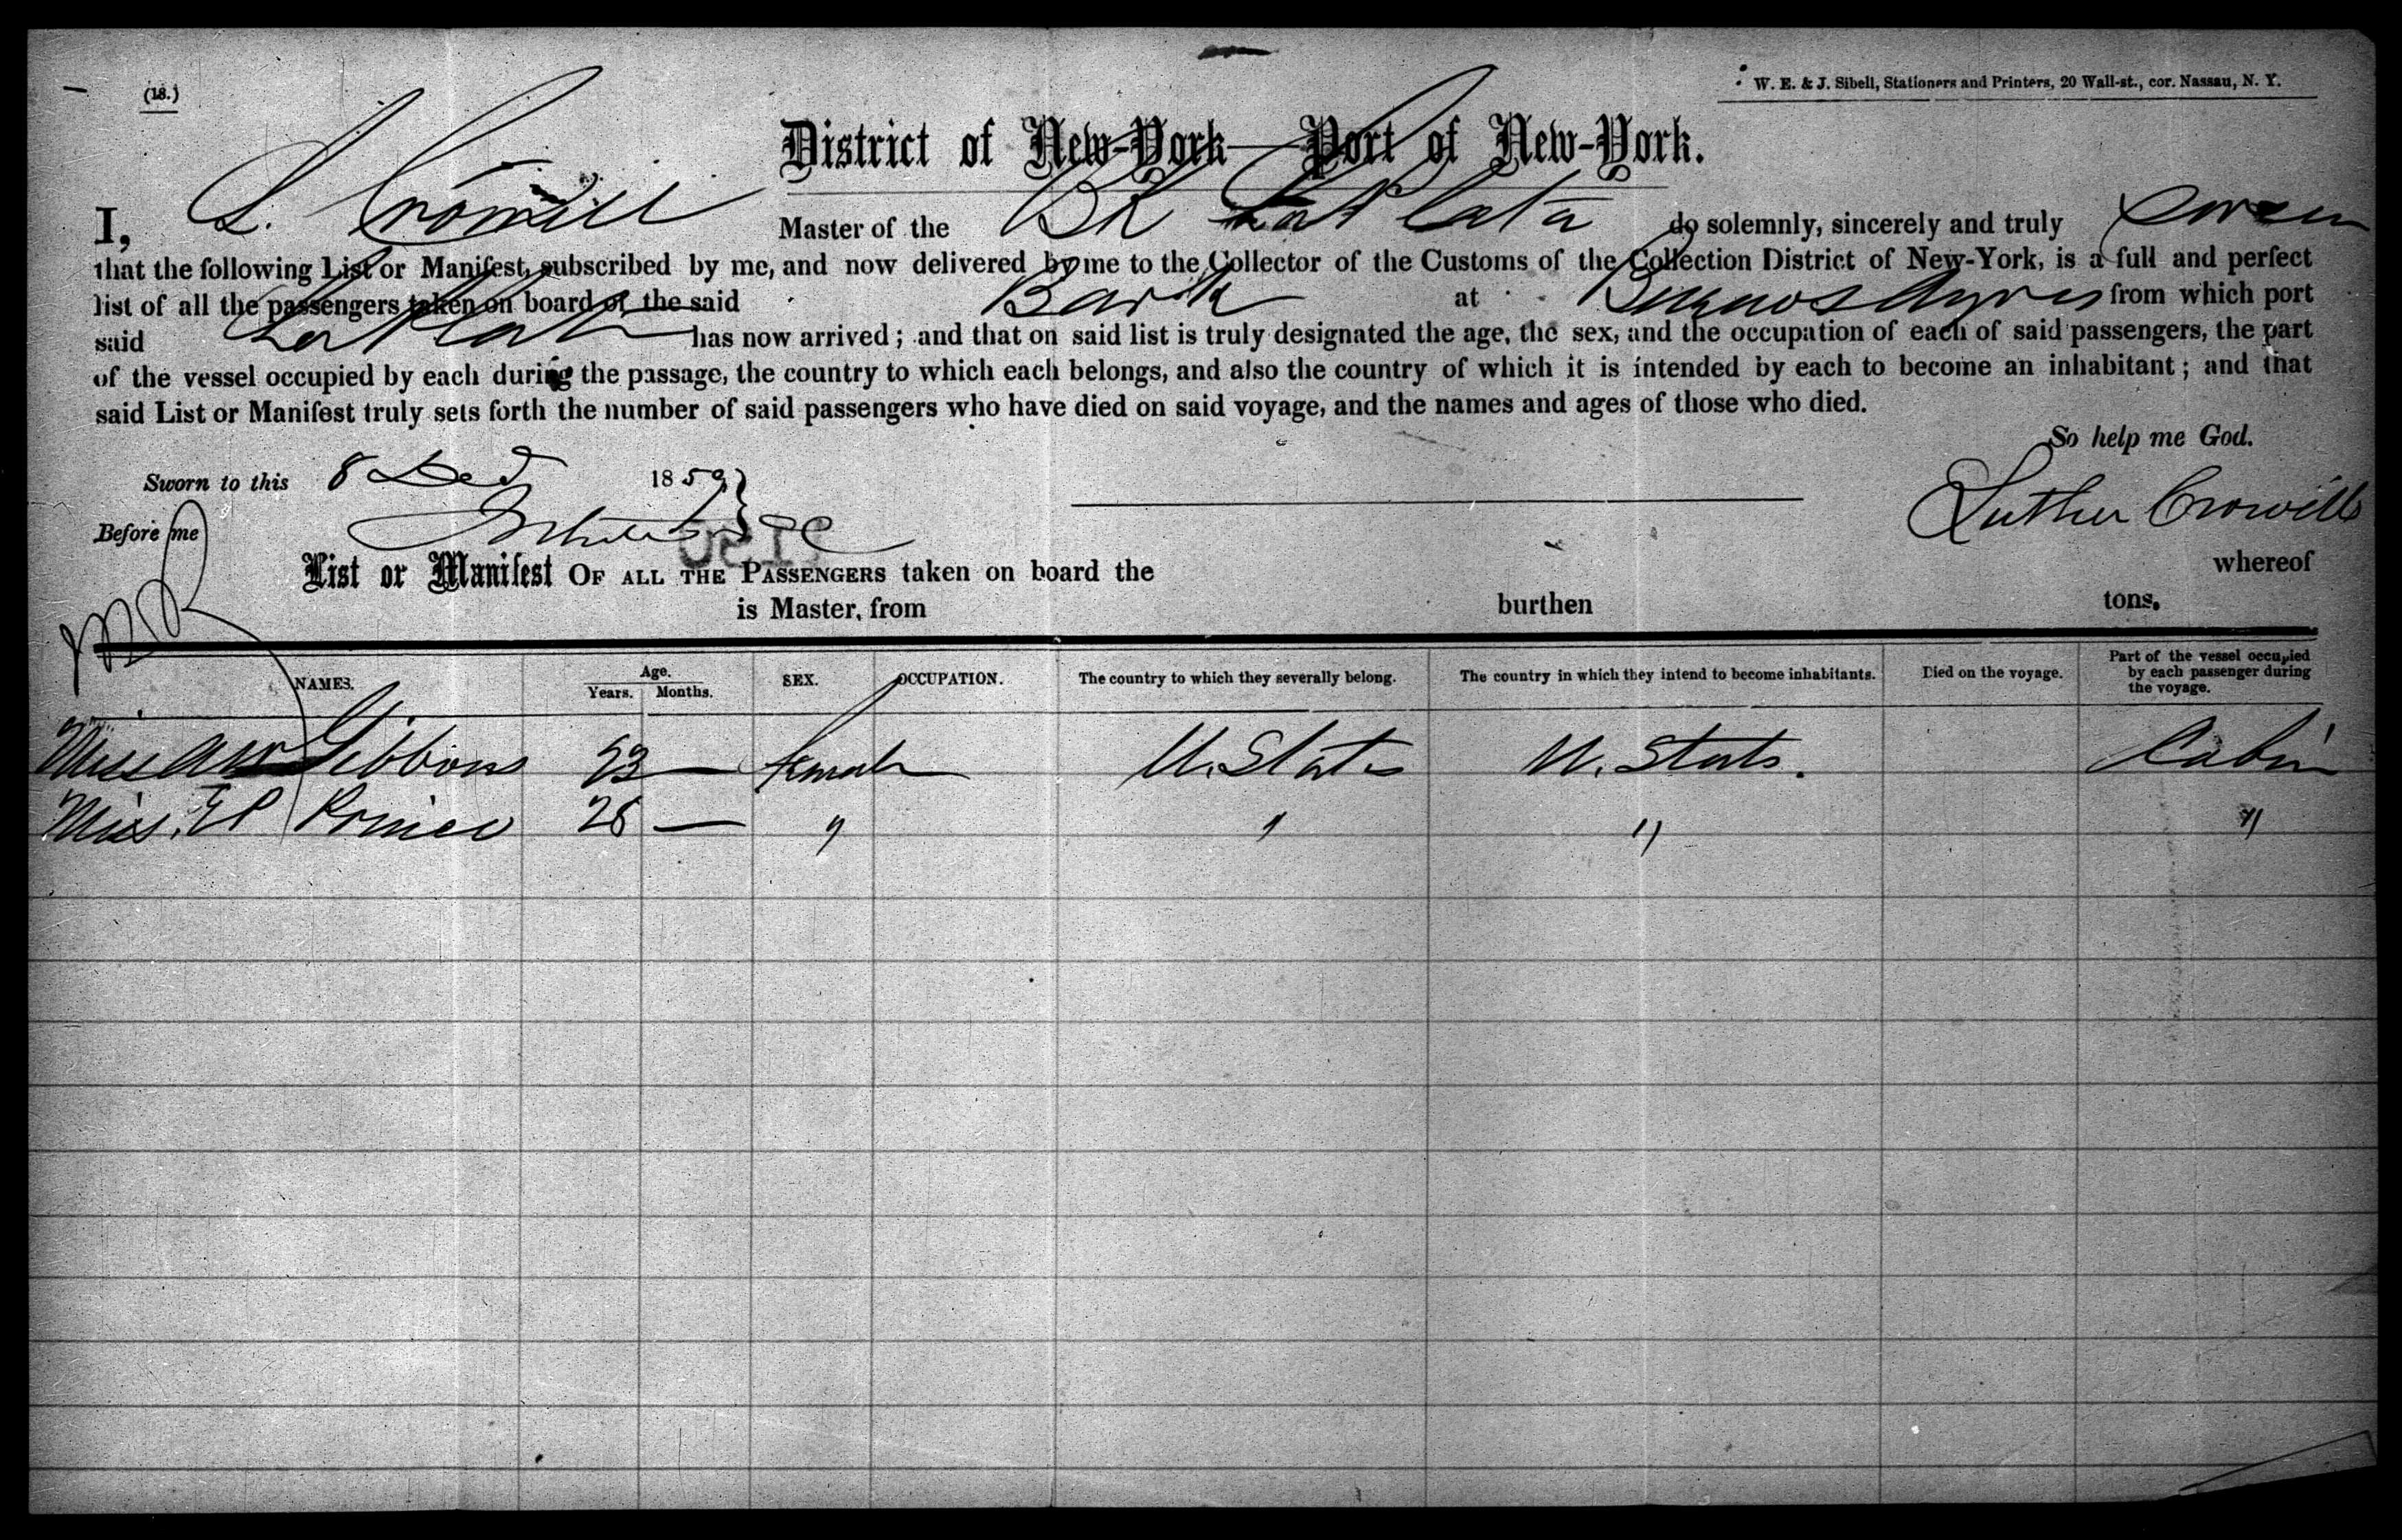 (18.)
W. E. & J. Sibell, Stationers and Printers, 20 Wall-st., cor. Nassau, N. Y.
District of New-York—Port of New-York.
I, L. Crowell Master of the Bk La Plata do solemnly, sincerely and truly swear
that the following List or Manifest, subscribed by me, and now delivered by me to the Collector of the Customs of the Collection District of New-York, is a full and perfect
list of all the passengers taken on board of the said Bark at Buenos Ayres from which port
said La Plata has now arrived; and that on said list is truly designated the age, the sex, and the occupation of each of said passengers, the part
of the vessel occupied by each during the passage, the country to which each belongs, and also the country of which it is intended by each to become an inhabitant; and that
said List or Manifest truly sets forth the number of said passengers who have died on said voyage, and the names and ages of those who died.
So help me God.
Sworn to this 8 Dec 1859
Luther Crowell
Before me
List or Manifest OF ALL THE PASSENGERS taken on board the whereof
is Master, from burthen tons.
NAMES. Age. Years. Months. SEX. OCCUPATION. The country to which they severally belong. The country in which they intend to become inhabitants. Died on the voyage. Part of the vessel occupied by each passenger during the voyage.
Miss Gibbons — female U. States U. States. Cabin
Miss. E P Prince 28 — " " " "